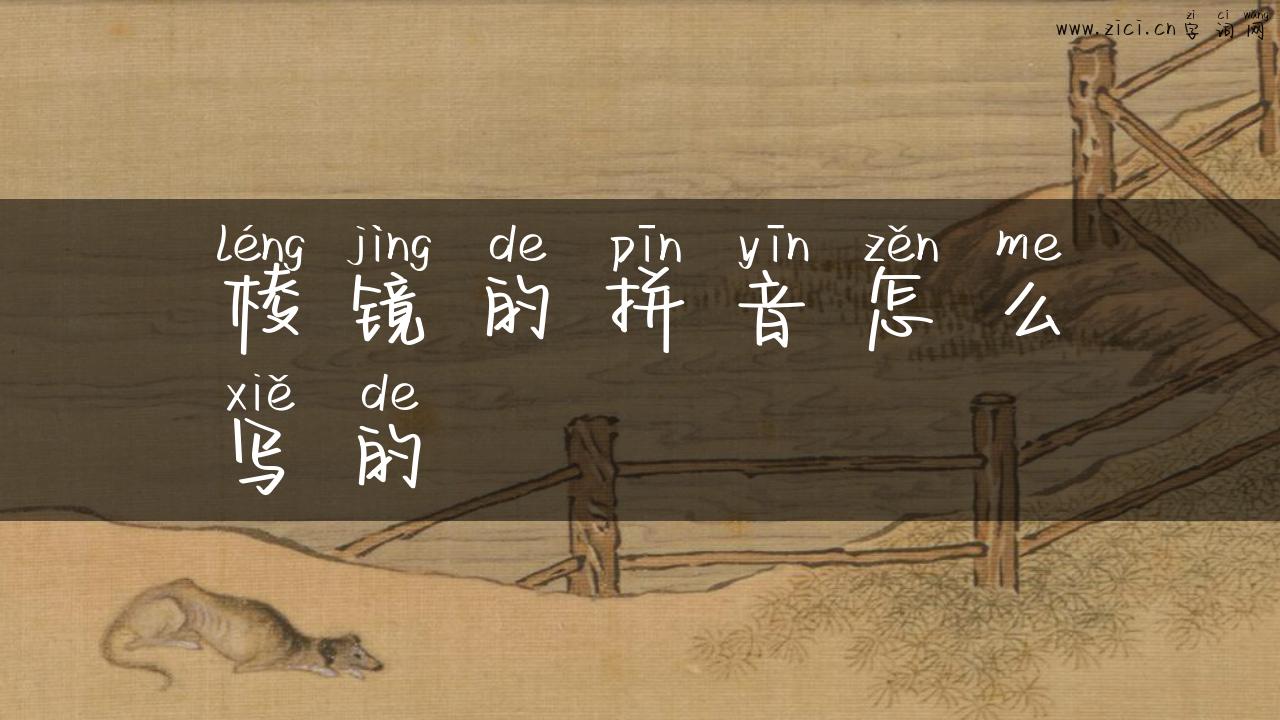 zi ci wang
www.zici.cn 字词网
léng jìng de pīn yīn zěn me
棱镜的拼音怎么
xiě de
写的